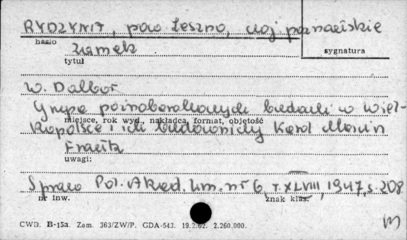 RYDZYNA, pow Leszno, woj poznańskie
hasło
zamek
sygnatura
tytuł
W. Dalbor
Grupa późnobarokowych budowli w Wiel-
miejsce, rok wyd., nakładca, format, objętość
kopolsce i ich budowniczy Karol Marcin
Frantz
uwagi:
Spraw Pol. Akad. Um. nr 6, T. XLVIII, 1947, s. 208
nr inw.
znak klas.
CWD. B-15a. Zam. 363/ZW/P. GDA-543. 19.2.62. 2.260.000.